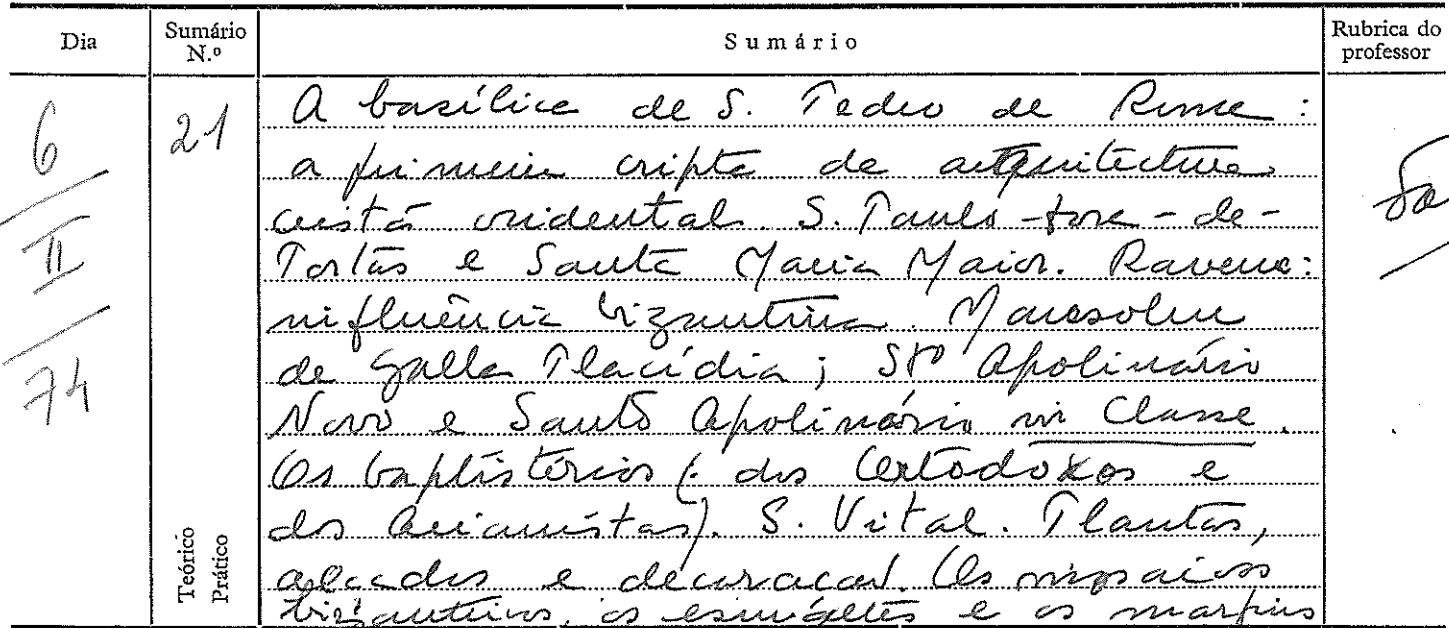 Dia
Sumário N.º
Sumário
Rubrica do professor
6
II
74
21
A basílica de S. Pedro de Roma:
a primeira cripta de arquitectura
cristã ocidental. S. Paulo-fora-de-
Portas e Santa Maria Maior. Ravena:
influência bizantina. Mausoleu
de Galla Placídia; Stº Apolinário
Novo e Santo Apolinário in Classe.
Os baptistérios (: dos Ortodoxos e
dos Arianistas). S. Vital. Plantas,
alçados e decoração. Os mosaicos
bizantinos, os esmaltes e os marfins
Teórico
Prático